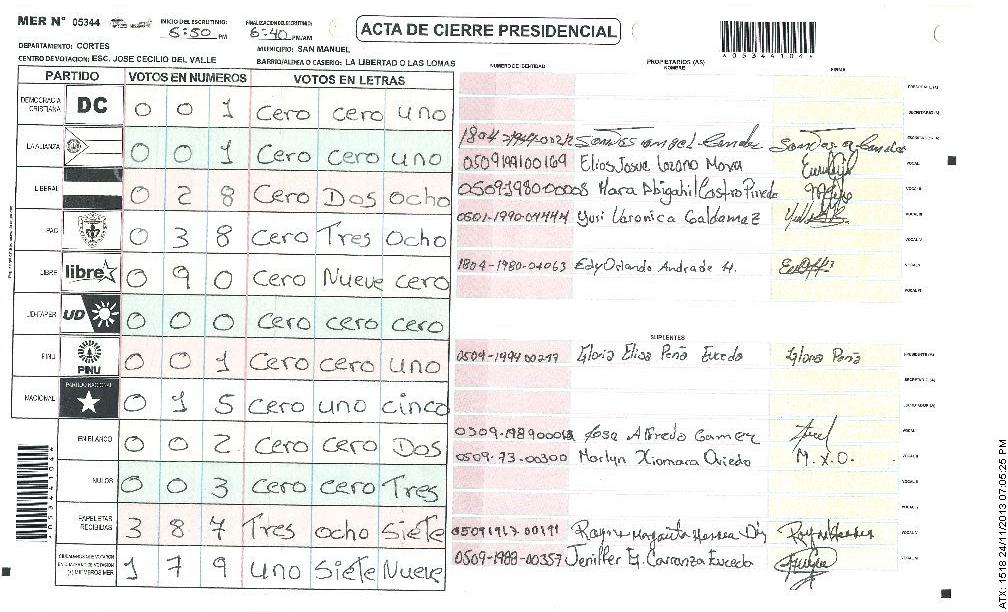 MER N° 05344
INICIO DEL ESCRUTINIO: 6:50 PM
FINALIZACION DEL ESCRUTINIO: 6:40 PM/AM
ACTA DE CIERRE PRESIDENCIAL
*05344104*
DEPARTAMENTO: CORTES
MUNICIPIO: SAN MANUEL
CENTRO DE VOTACION: ESC. JOSE CECILIO DEL VALLE
BARRIO/ALDEA O CASERIO: LA LIBERTAD O LAS LOMAS
PARTIDO VOTOS EN NUMEROS VOTOS EN LETRAS
DEMOCRACIA CRISTIANA DC 0 0 1 Cero cero uno
LA ALIANZA 0 0 1 Cero Cero uno
LIBERAL 0 2 8 Cero Dos ocho
PAC 0 3 8 Cero Tres Ocho
LIBRE libre 0 9 0 Cero Nueve cero
UD-FAPER UD 0 0 0 cero cero cero
PINU PINU 0 0 1 Cero cero uno
NACIONAL PARTIDO NACIONAL 0 1 5 cero uno cinco
EN BLANCO 0 0 2 Cero Cero Dos
NULOS 0 0 3 cero cero Tres
PAPELETAS RECIBIDAS 3 8 7 Tres ocho Siete
1 7 9 uno Siete Nueve
NUMERO DE IDENTIDAD
PROPIETARIOS (AS)
NOMBRE
FIRMA
PRESIDENTE (A)
SECRETARIO (A)
ESCRUTADOR (A)
0509199100169 Elios Josue Lozano Mora VOCAL I
0509-1980-00008 Mara Abigahil Castro Pineda VOCAL II
0501-1990-04444 Yuri Varonica Galdamez VOCAL III
VOCAL IV
1804-1980-04063 Edy Orlando Andrade H. VOCAL V
VOCAL VI
SUPLENTES
0509-1994 00297 Gloria Elisa Peña Euceda Gloria Peña PRESIDENTE (A)
SECRETARIO (A)
ESCRUTADOR (A)
Alfredo Gamez VOCAL I
0509-73-00300 Marlyn Xiomara Oviedo M.X.O. VOCAL II
VOCAL III
VOCAL IV
VOCAL V
0509-1988-00357 Jeniffer G. Carranza Euceda VOCAL VI
*05344104*
ATX: 1518 24/11/2013 07:05:25 PM